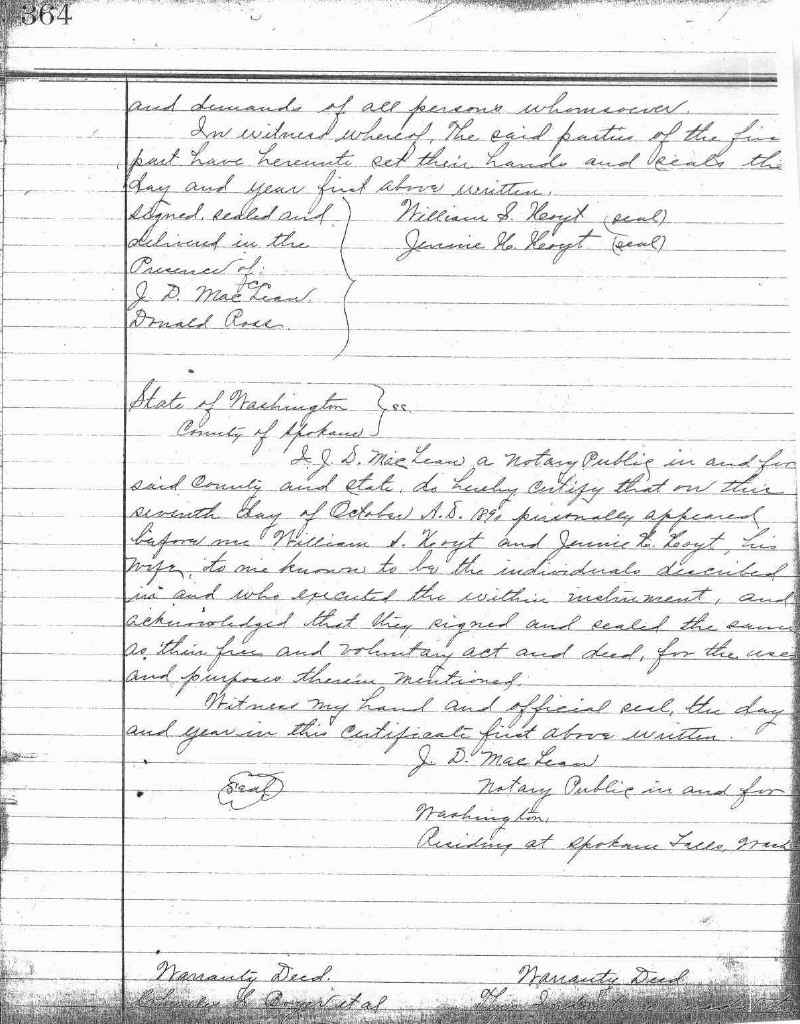 364
and demands of all persons whomsoever.
In witness whereof, The said parties of the firs
part have hereunto set their hands and seals the
day and year first above written.
Signed, sealed and William S. Hoyt (seal)
delivered in the Jennie H. Hoyt (seal)
Presence of:
J. D. MacLean.
Donald Ross.
State of Washington } ss.
County of Spokane
I J. D. MacLean a Notary Public in and for
said County and State, do hereby certify that on this
seventh day of October A.D. 1890 personally appeared
before me William S. Hoyt and Jennie H. Hoyt, his
wife, to me known to be the individuals described
in and who executed the within instrument, and
acknowledged that they signed and sealed the same
as their free and voluntary act and deed, for the uses
and purposes therein mentioned.
Witness my hand and official seal, the day
and year in this certificate first above written.
J. D. MacLean
(Seal) Notary Public in and for
Washington,
Residing at Spokane Falls, Wash
Warranty Deed. Warranty Deed
et al